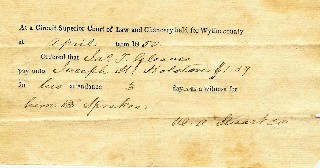 At a Circuit Superior Court of Law and Chancery held for Wythe county
at April term 1850
Ordered that Jas. T. Gleaves
pay unto Joseph H. $1.59
for his attendance 3 days as a witness for
him vs Sprakes.